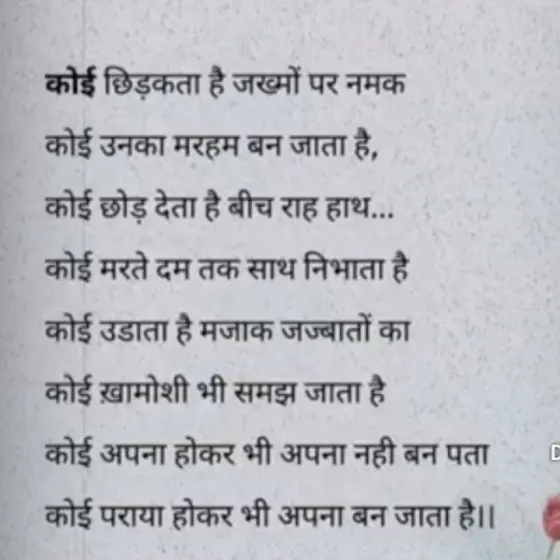 कोई छिड़कता है जख्मों पर नमक
कोई उनका मरहम बन जाता है,
कोई छोड़ देता है बीच राह हाथ...
कोई मरते दम तक साथ निभाता है
कोई उडाता है मजाक जज्बातों का
कोई ख़ामोशी भी समझ जाता है
कोई अपना होकर भी अपना नही बन पता
कोई पराया होकर भी अपना बन जाता है।।